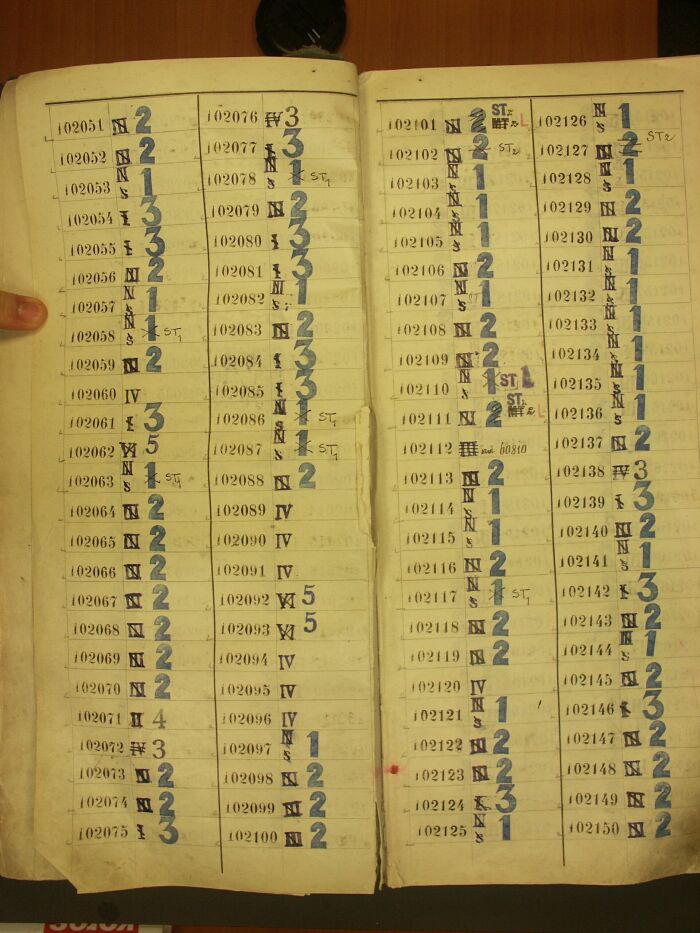 102051 N 2
102052 N 2
102053 N s 1
102054 I 3
102055 I 3
102056 N 2
102057 N s 1
102058 N s 1 ST1
102059 N 2
102060 IV
102061 I 3
102062 VI 5
102063 N s 1 ST1
102064 N 2
102065 N 2
102066 N 2
102067 N 2
102068 N 2
102069 N 2
102070 N 2
102071 II 4
102072 IV 3
102073 N 2
102074 N 2
102075 I 3
102076 IV 3
102077 I 3
102078 N s 1 ST1
102079 N 2
102080 I 3
102081 I 3
102082 N s 1
102083 N 2
102084 I 3
102085 I 3
102086 N s 1 ST1
102087 N s 1 ST1
102088 N 2
102089 IV
102090 IV
102091 IV
102092 VI 5
102093 VI 5
102094 IV
102095 IV
102096 IV
102097 N s 1
102098 N 2
102099 N 2
102100 N 2
102101 N 2 ST2 L
102102 N 2 ST2
102103 N s 1
102104 N s 1
102105 N s 1
102106 N 2
102107 N s 1
102108 N 2
102109 N 2
102110 N s 1 ST 1
102111 N 2 ST2 L
102112 III 60810
102113 N 2
102114 N s 1
102115 N s 1
102116 N 2
102117 N s 1 ST1
102118 N 2
102119 N 2
102120 IV
102121 N s 1
102122 N 2
102123 N 2
102124 I 3
102125 N s 1
102126 N s 1
102127 N 2 ST2
102128 N s 1
102129 N 2
102130 N 2
102131 N s 1
102132 N s 1
102133 N s 1
102134 N s 1
102135 N s 1
102136 N s 1
102137 N 2
102138 IV 3
102139 I 3
102140 N 2
102141 N s 1
102142 I 3
102143 N 2
102144 N s 1
102145 N 2
102146 I 3
102147 N 2
102148 N 2
102149 N 2
102150 N 2